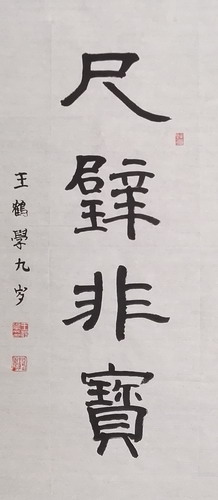 尺璧非寶
王鶴學九岁